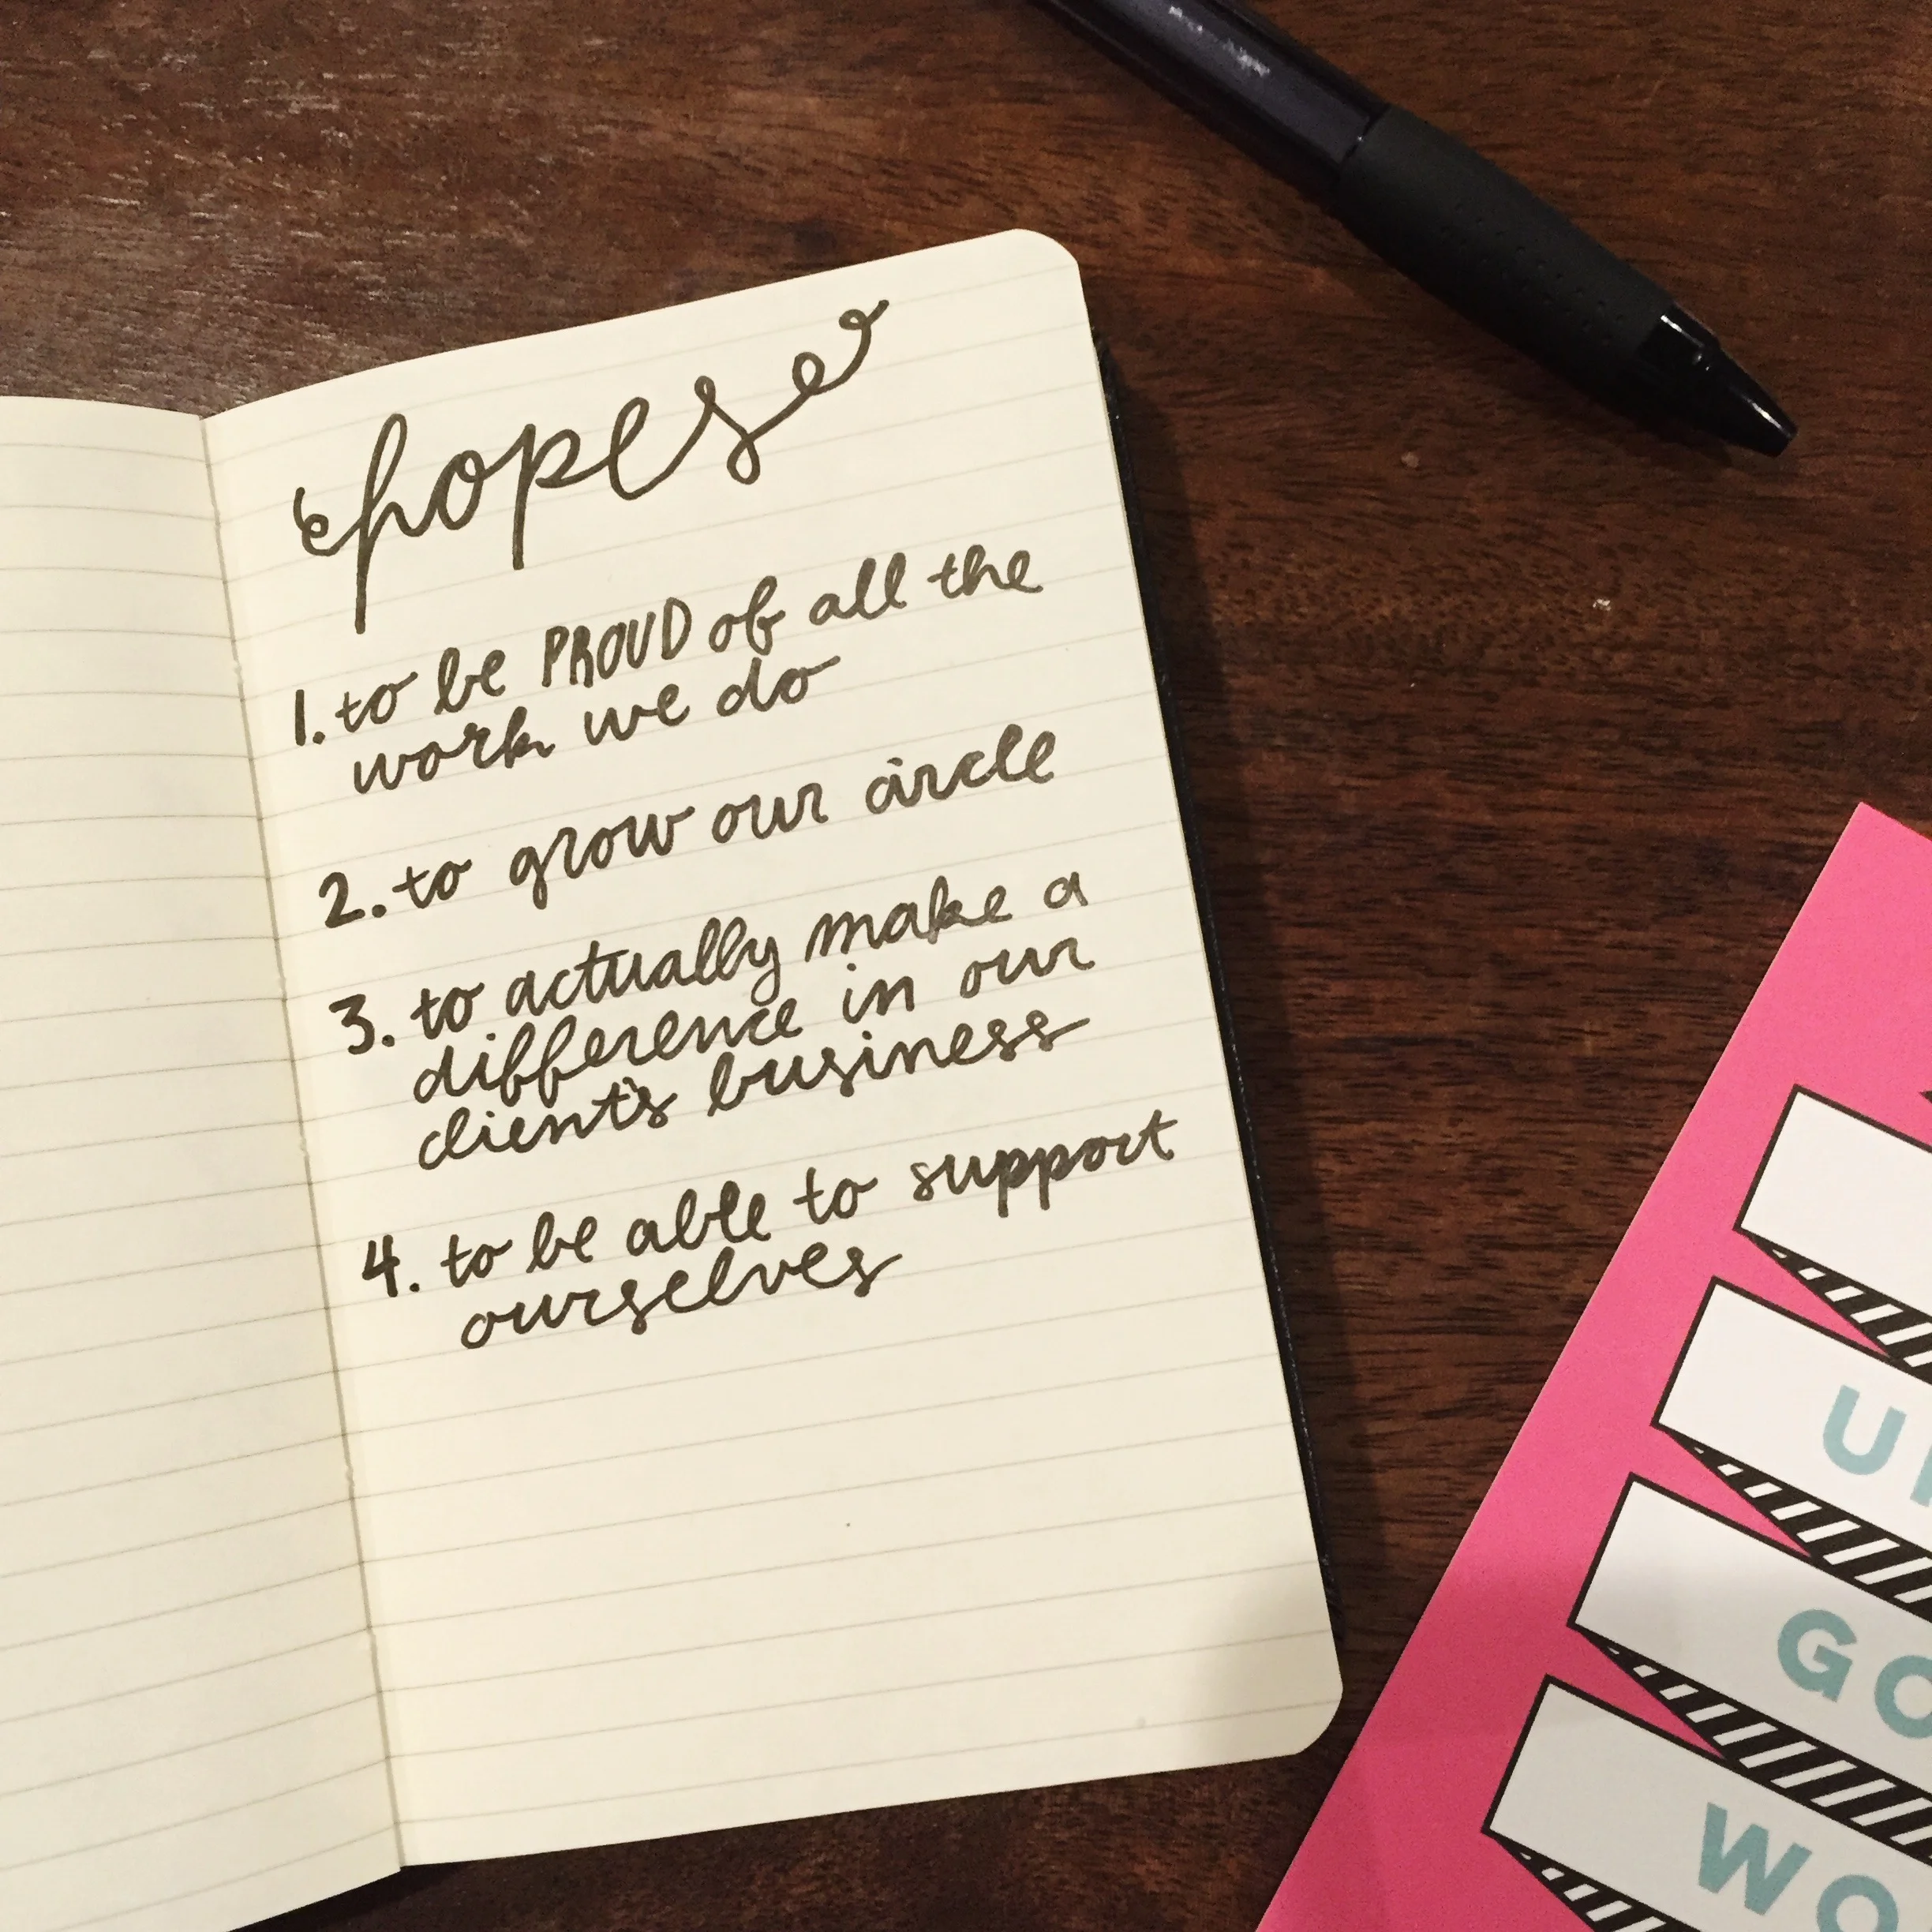 hopes
1. to be PROUD of all the
work we do
2. to grow our circle
3. to actually make a
difference in our
client's business
4. to be able to support
ourselves
GO
WO